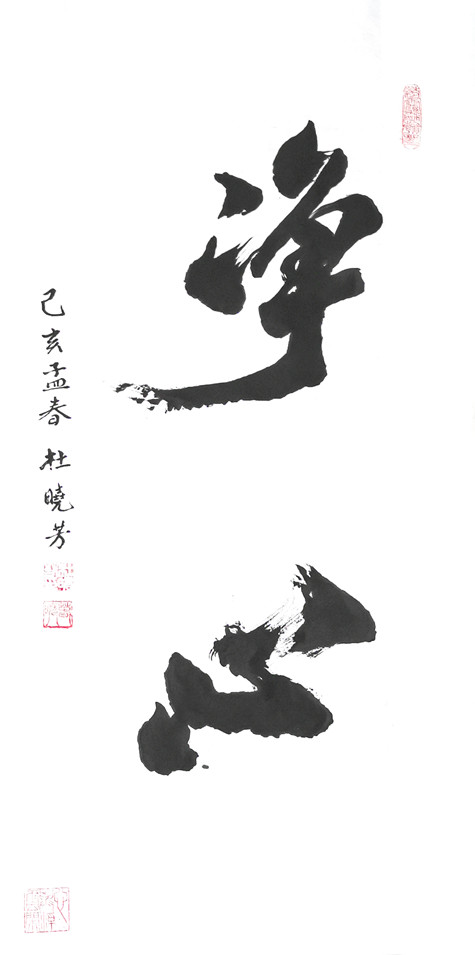 净心
己亥孟春 杜晓芳